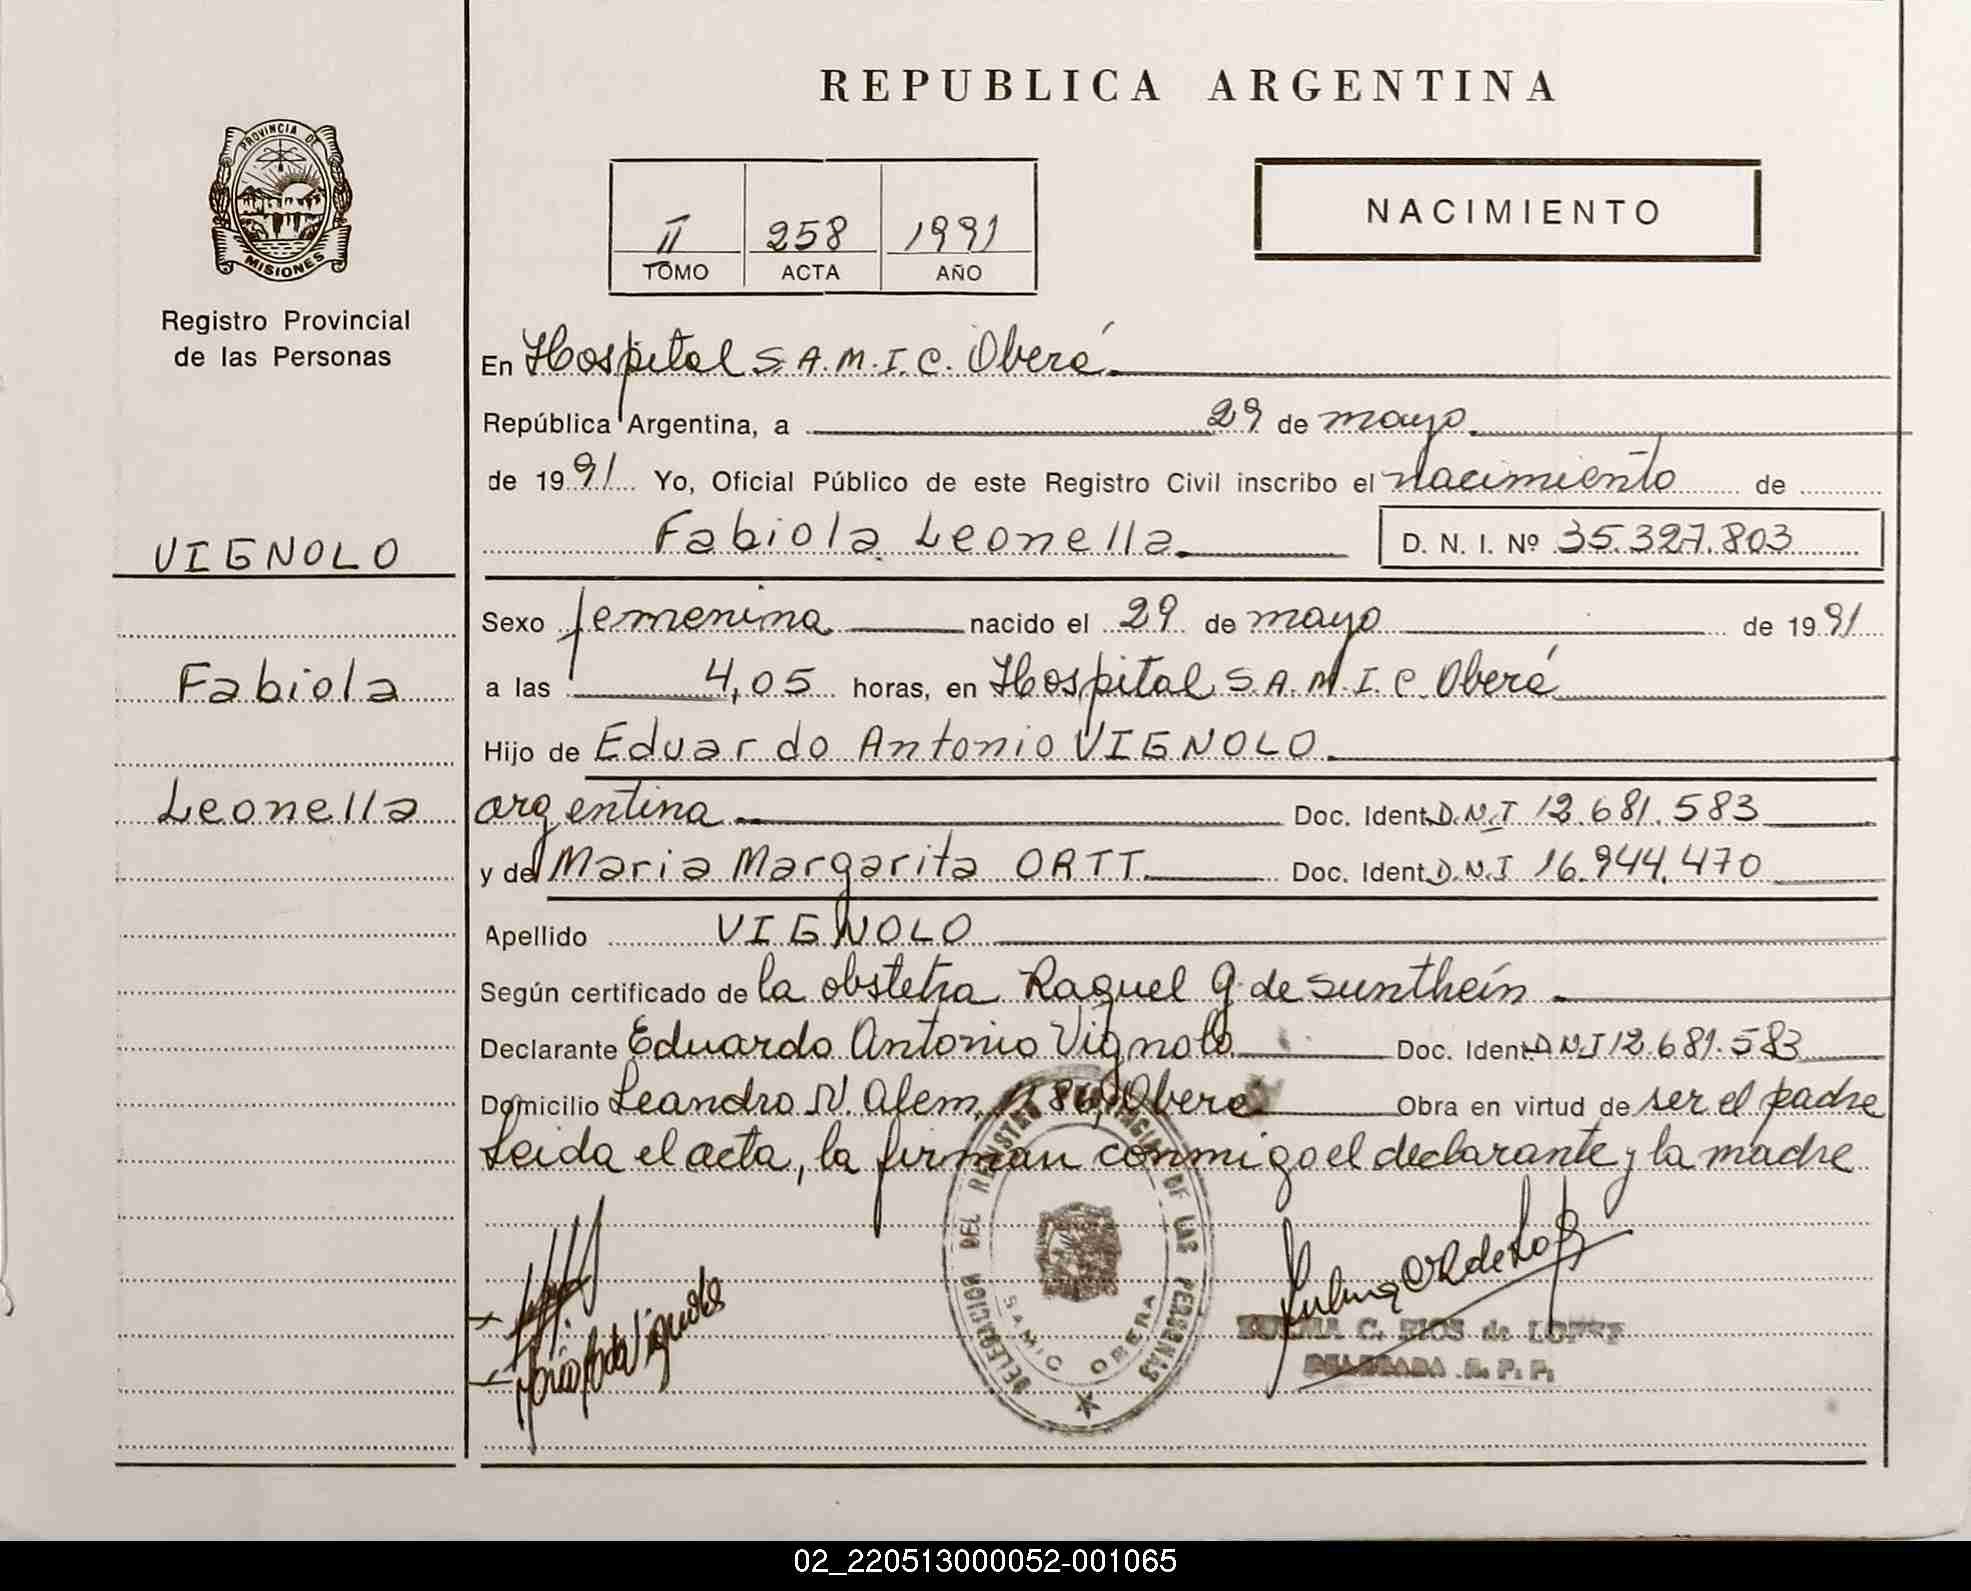 REPUBLICA ARGENTINA
PROVINCIA DE
MISIONES
Registro Provincial
de las Personas
II 258 1991
TOMO ACTA AÑO
NACIMIENTO
VIGNOLO
Fabiola
Leonella
En Hospital S.A.M.I.C. Oberá
República Argentina, a 29 de mayo
de 1991 Yo, Oficial Público de este Registro Civil inscribo el nacimiento de
Fabiola Leonella D. N. I. Nº 35.327.803
Sexo femenina nacido el 29 de mayo de 1991
a las 4,05 horas, en Hospital S.A.M.I.C. Oberá
Hijo de Eduardo Antonio VIGNOLO
argentina Doc. Ident. D.N.I 12.681.583
y de Maria Margarita ORTT Doc. Ident. D.N.I 16.944.470
Apellido VIGNOLO
Según certificado de la obstetra Raquel G de Sunthein
Declarante Eduardo Antonio Vignolo Doc. Ident. DNI 12.681.583
Domicilio Leandro N. Alem, Oberá Obra en virtud de ser el padre
Leida el acta, la firman conmigo el declarante y la madre
DELEGACION DEL REGISTRO PROVINCIAL DE LAS PERSONAS
SAMIC OBERA
C. RIOS de LOPEZ
DELEGADA R. P. P.
02_220513000052-001065